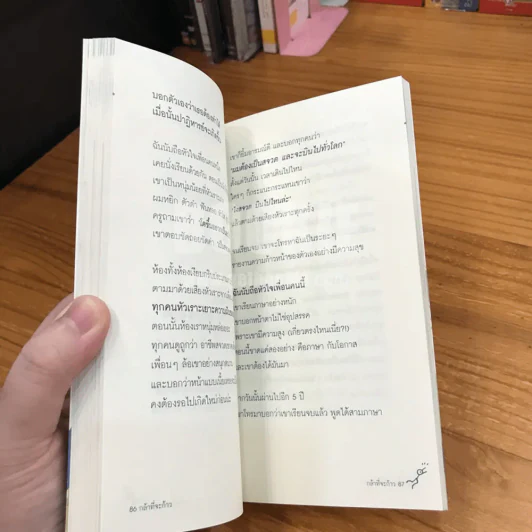 บอกตัวเองว่าเธอต้องทำได้
เมื่อนั้นปาฏิหารย์จะเกิดขึ้น
ฉันนับถือหัวใจเพื่อนคนนึง
เคยนั่งเรียนด้วยกัน
เขาเป็นหนุ่มน้อยที่หัว
ผมหยิก ตัวดำ ฟันห่าง
ครูถามเขาว่า โตขึ้นอยาก
เขาตอบขัดถอยวัดคำ
ห้องทั้งห้องเงียบกริบ
ตามมาด้วยเสียงหัวเราะ
ทุกคนหัวเราะเยาะความฝัน
ตอนนั้นห้องเหาหนุ่มหล่อ
ทุกคนดูถูกว่า อาชีพ
เพื่อนๆ ล้อเขาอย่างสนุก
และบอกว่าหน้าแบบนี้
คงต้องรอไปเกิดใหม่ก่อนนะ
86 กล้าที่จะก้าว
เขาก็ยิ้มอารมณ์ดี และบอกทุกคนว่า
"ผมต้องเป็นสจวต และจะบินไปทั่วโลก"
ตั้งแต่วันนั้น เวลาเดินไปไหน
ใครๆ ก็กระแนะกระแหนเขาว่า
"ไงสจวต บินไปไหนล่ะ"
แล้วตามด้วยเสียงหัวเราะทุกครั้ง
จนเรียนจบ เขาจะโทรหาฉันเป็นระยะๆ
รายงานความก้าวหน้าของตัวเองอย่างมีความสุข
ฉันนับถือหัวใจเพื่อนคนนี้
เขาเรียนภาษาอย่างหนัก
เขาบอกหน้าตาไม่ใช่อุปสรรค
เพราะเขามีความสูง (เกี่ยวตรงไหนเนี่ย?)
ตอนนี้ขาดแค่สองอย่าง คือภาษา กับโอกาส
และเขาต้องได้มันมา
จากวันนั้นผ่านไปอีก 5 ปี
เขาโทรมาบอกว่าเขาเรียนจบแล้ว พูดได้สามภาษา
กล้าที่จะก้าว 87